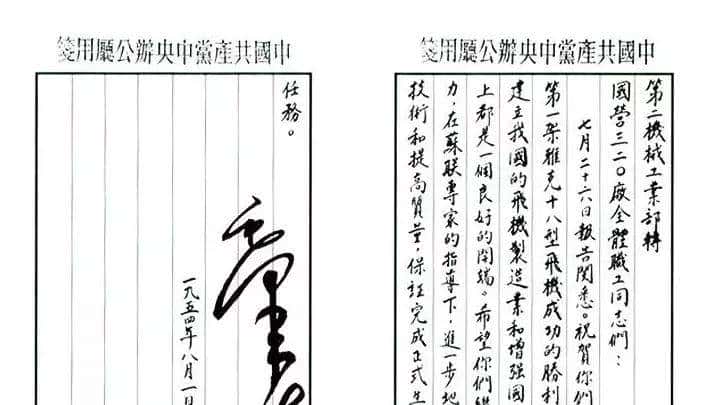 中國共產黨中央辦公廳用箋
第二機械工業部轉
國營三二〇廠全體職工同志們：
七月二十六日報告閱悉。祝賀你們
第一架雅克十八型飛機成功的勝利
建立我國的飛機製造業和增強國
上都是一個良好的開端。希望你們
力，在蘇聯專家的指導下，進一步地
技術和提高質量，保証完成正式生
中國共產黨中央辦公廳用箋
任務。
毛澤東
一九五四年八月一日